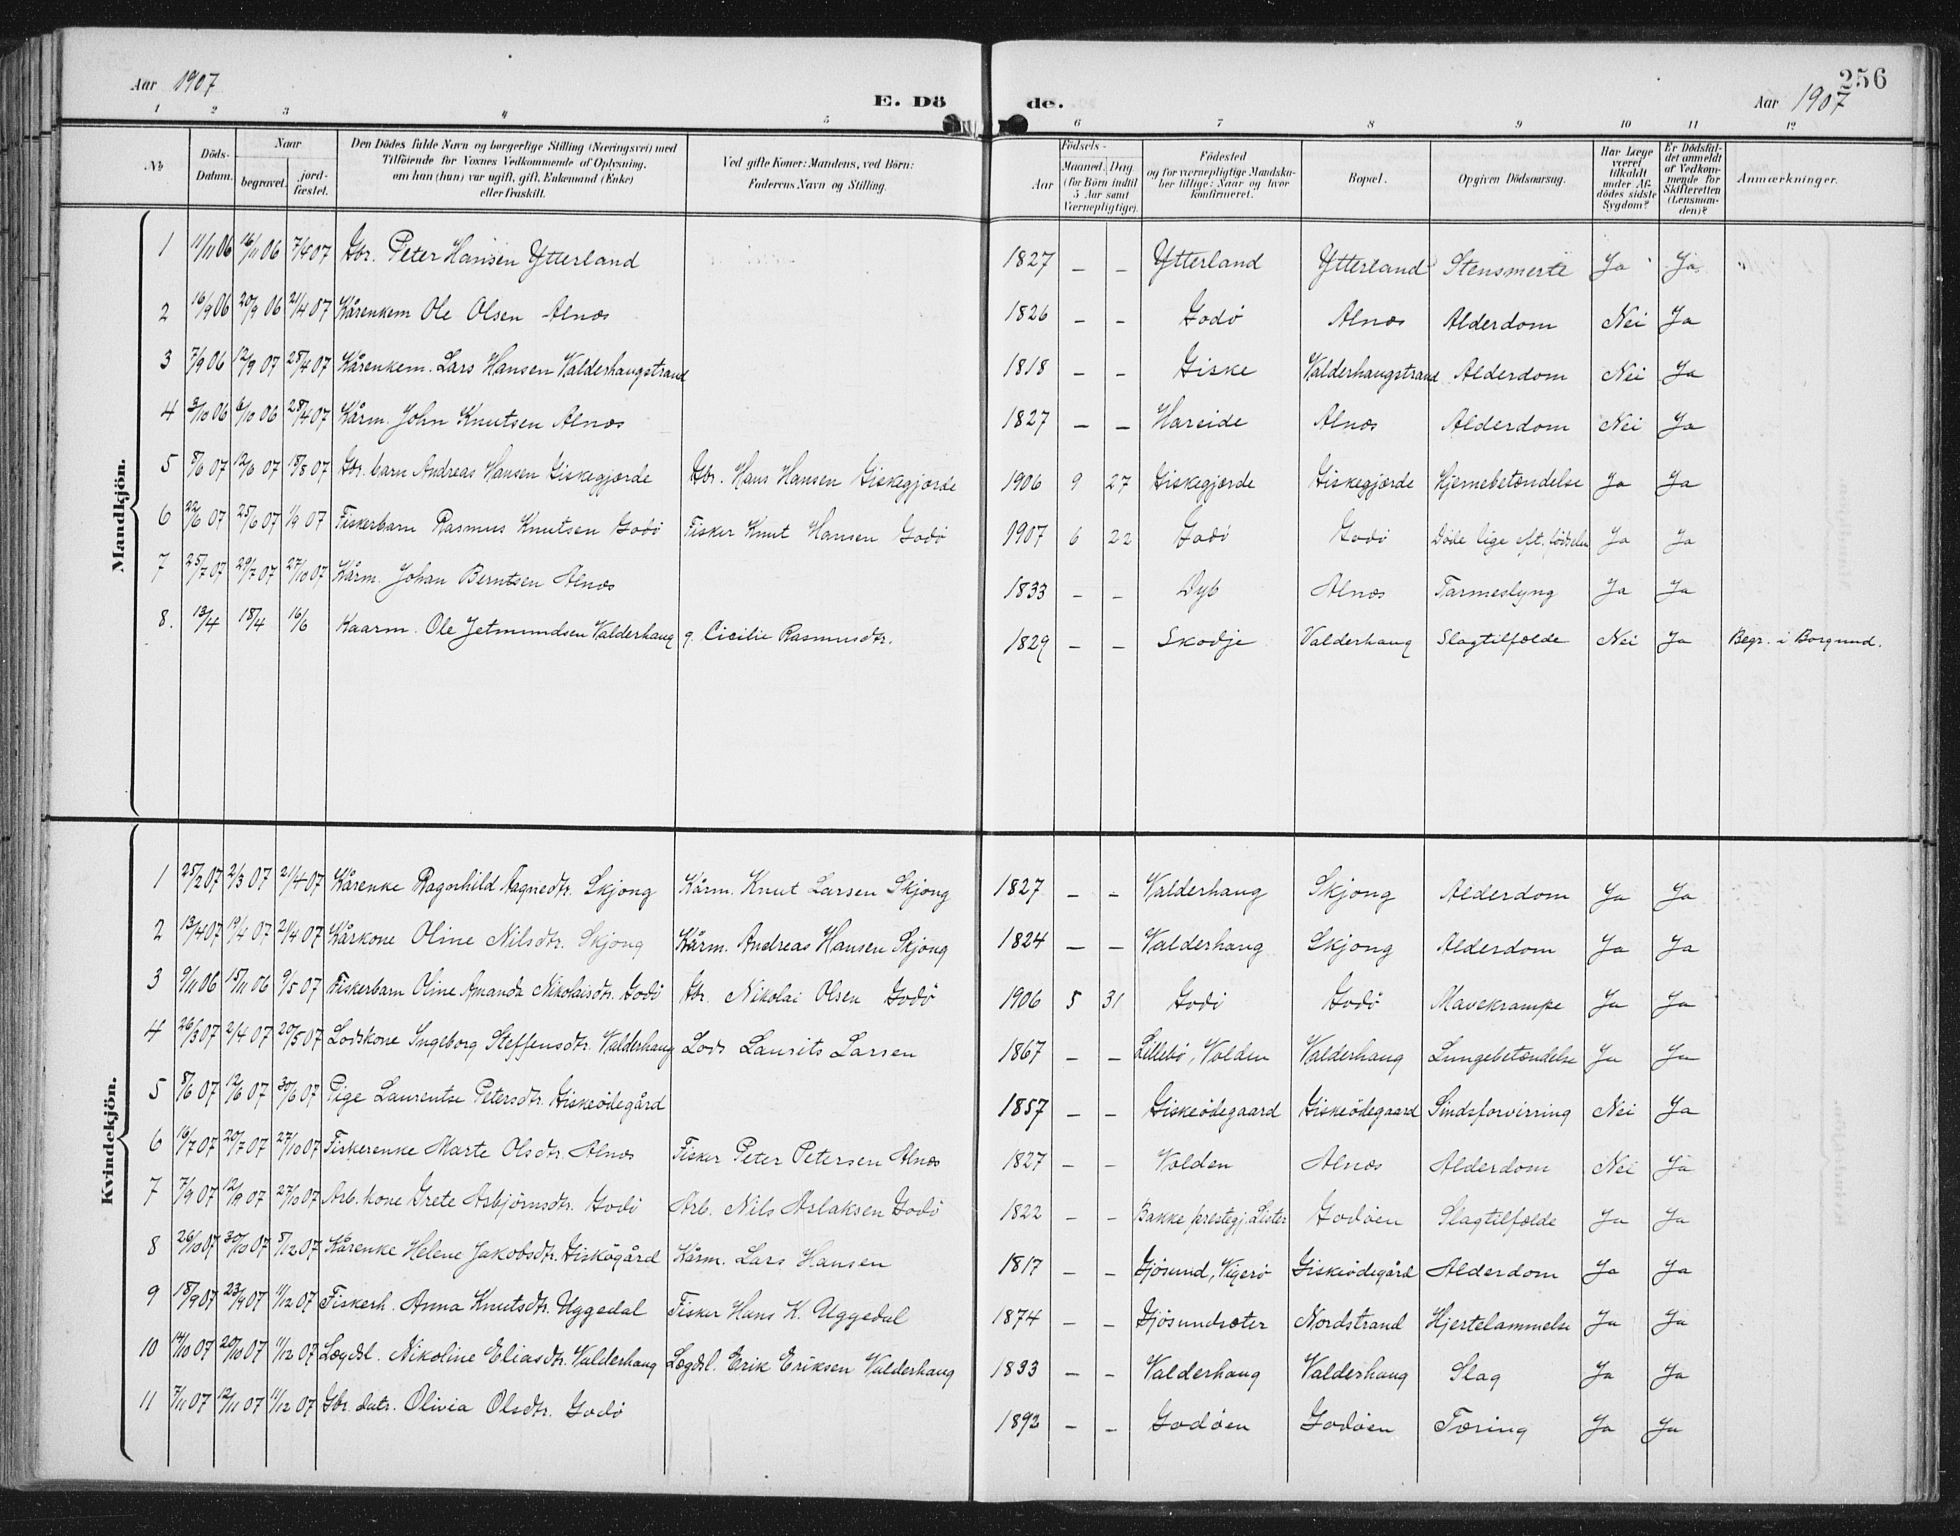 Aar 1907 E. Dö de. Aar 1907 256
1 2 3 4 5 6 7 8 9 10 11 12
No. Döds-Datum. Naar begravet. jordfæstet. Den Dödes fulde Navn og borgerlige Stilling (Næringsvei) med Tilföiende for Voxnes Vedkommende af Oplysning, om han (hun) var ugift, gift, Enkemand (Enke) eller fraskilt. Ved gifte Koner: Mandens, ved Börn: Faderens Navn og Stilling. Födsels- Aar Maaned. Dag (for Börn indtil 5 Aar samt Værnepligtige). Födested og for værnepligtige Mandskaber tillige: Naar og hvor konfirmeret. Bopæl. Opgiven Dödsaarsag. Har Læge været tilkaldt under Afdödes sidste Sygdom? Er Dödsfaldet anmeldt af Vedkommende for Skifteretten (Lensmanden)? Anmærkninger.
Mandkjön.
1 11/11 06 16/11 06 7/4 07 Gbr. Peter Hansen Ytterland 1827 – – Ytterland Ytterland Stensmerte Ja Ja "
2 16/9 06 20/9 06 21/4 07 Kårenkem Ole Olsen Alnæs 1826 – – Godø Alnæs Alderdom Nei Ja
3 7/9 06 12/9 07 28/4 07 Kårenkem. Lars Hansen Valderhaugstrand 1818 – – Giske Valderhaugstrand Alderdom Nei Ja
4 3/10 06 6/10 06 28/4 07 Kårm. John Knutsen Alnæs 1827 – – Hareide Alnæs Alderdom Nei Ja
5 8/6 07 12/6 07 18/8 07 Gbr. barn Andreas Hansen Giskegjærde Gbr. Hans Hansen Giskegjærde 1906 9 27 Giskegjærde Giskegjærde Hjernebetændelse Ja Ja
6 22/6 07 25/6 07 1/9 07 Fiskerbarn Rasmus Knutsen Godø Fisker Knut Hansen Godø 1907 6 22 Godø Godø Døde lige eft. fødselen Ja Ja
7 25/7 07 29/7 07 27/10 07 Kårm. Johan Berntsen Alnæs 1833 – – Dyb Alnæs Tarmeslyng Ja Ja
8. 13/4 18/4 16/6 Kaarm. Ole Jetmundsen Valderhaug g. Cicilie Rasmusdtr. 1829 – – Skodje Valderhaug Slagtilfælde Nei Ja Begr. i Borgund.
Kvindekjön.
1 25/2 07 2/3 07 21/4 07 Kårenke Ragnhild Aagnedtr. Skjong Kårm. Knut Larsen Skjong 1827 – – Valderhaug Skjong Alderdom Ja Ja
2 13/4 07 19/4 07 21/4 07 Kårkone Oline Nilsdtr. Skjong Kårm. Andreas Hansen Skjong 1824 – – Valderhaug Skjong Alderdom Ja Ja
3 9/11 06 15/11 06 9/5 07 Fiskerbarn Oline Amanda Nikolaisdtr. Godø Gbr. Nikolai Olsen Godø 1906 5 31 Godø Godø Mavekrampe Ja Ja
4 26/3 07 2/4 07 20/5 07 Lodskone Ingeborg Steffensdtr. Valderhaug Lods Laurits Larsen 1867 – – Lillebø, Volden Valderhaug Lungebetændelse Ja Ja
5 8/6 07 12/6 07 30/6 07 Pige Laurentse Petersdtr. Giskeødegård 1857 – – Giskeødegaard Giskeødegaard Sindsforvirring Nei Ja
6 16/7 07 20/7 07 27/10 07 Fiskerenke Marte Olsdtr. Alnæs Fisker Peter Petersen Alnæs 1827 – – Volden Alnæs Alderdom Nei Ja
7 7/9 07 12/9 07 27/10 07 Arb. kone Grete Asbjørnsdtr. Godø Arb. Nils Aslaksen Godø 1822 – – Bakke prestegj. Lister Godøen Slagtilfælde Ja Ja
8 26/10 07 30/10 07 8/12 07 Kårenke Helene Jakobsdtr. Giskøgård Kårm. Lars Hansen 1817 – – Gjøsund, Vigerø Giskeødegård Alderdom Ja Ja
9 18/9 07 23/9 07 11/12 07 Fiskerh. Anna Knutsdtr. Uggedal Fisker Hans K. Uggedal 1874 – – Gjøsundsæter Nordstrand Hjertelammelse Ja Ja
10 14/10 07 20/10 07 11/12 07 Lægdsl. Nikoline Eliasdtr. Valderhaug Lægdsl. Erik Eriksen Valderhaug 1833 – – Valderhaug Valderhaug Slag Ja Ja
11 7/11 07 12/11 07 11/12 07 Gbr. datr. Olivia Olsdtr. Godø 1892 – – Godøen Godøen Tæring Ja Ja